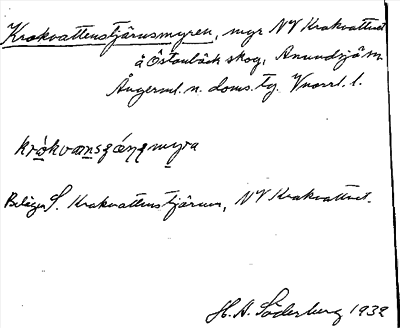 Krokvattenstjärnsmyren, myr NV Krokvattnet
å Östanbäck skog, Anundsjö sn.
Ångerml. n. doms. tg. Vnorrl. l.
krókvansȿä́ṇṇmyra
Belägen S. Krokvattenstjärnen, NV Krokvattnet.
H. A. Söderberg 1932